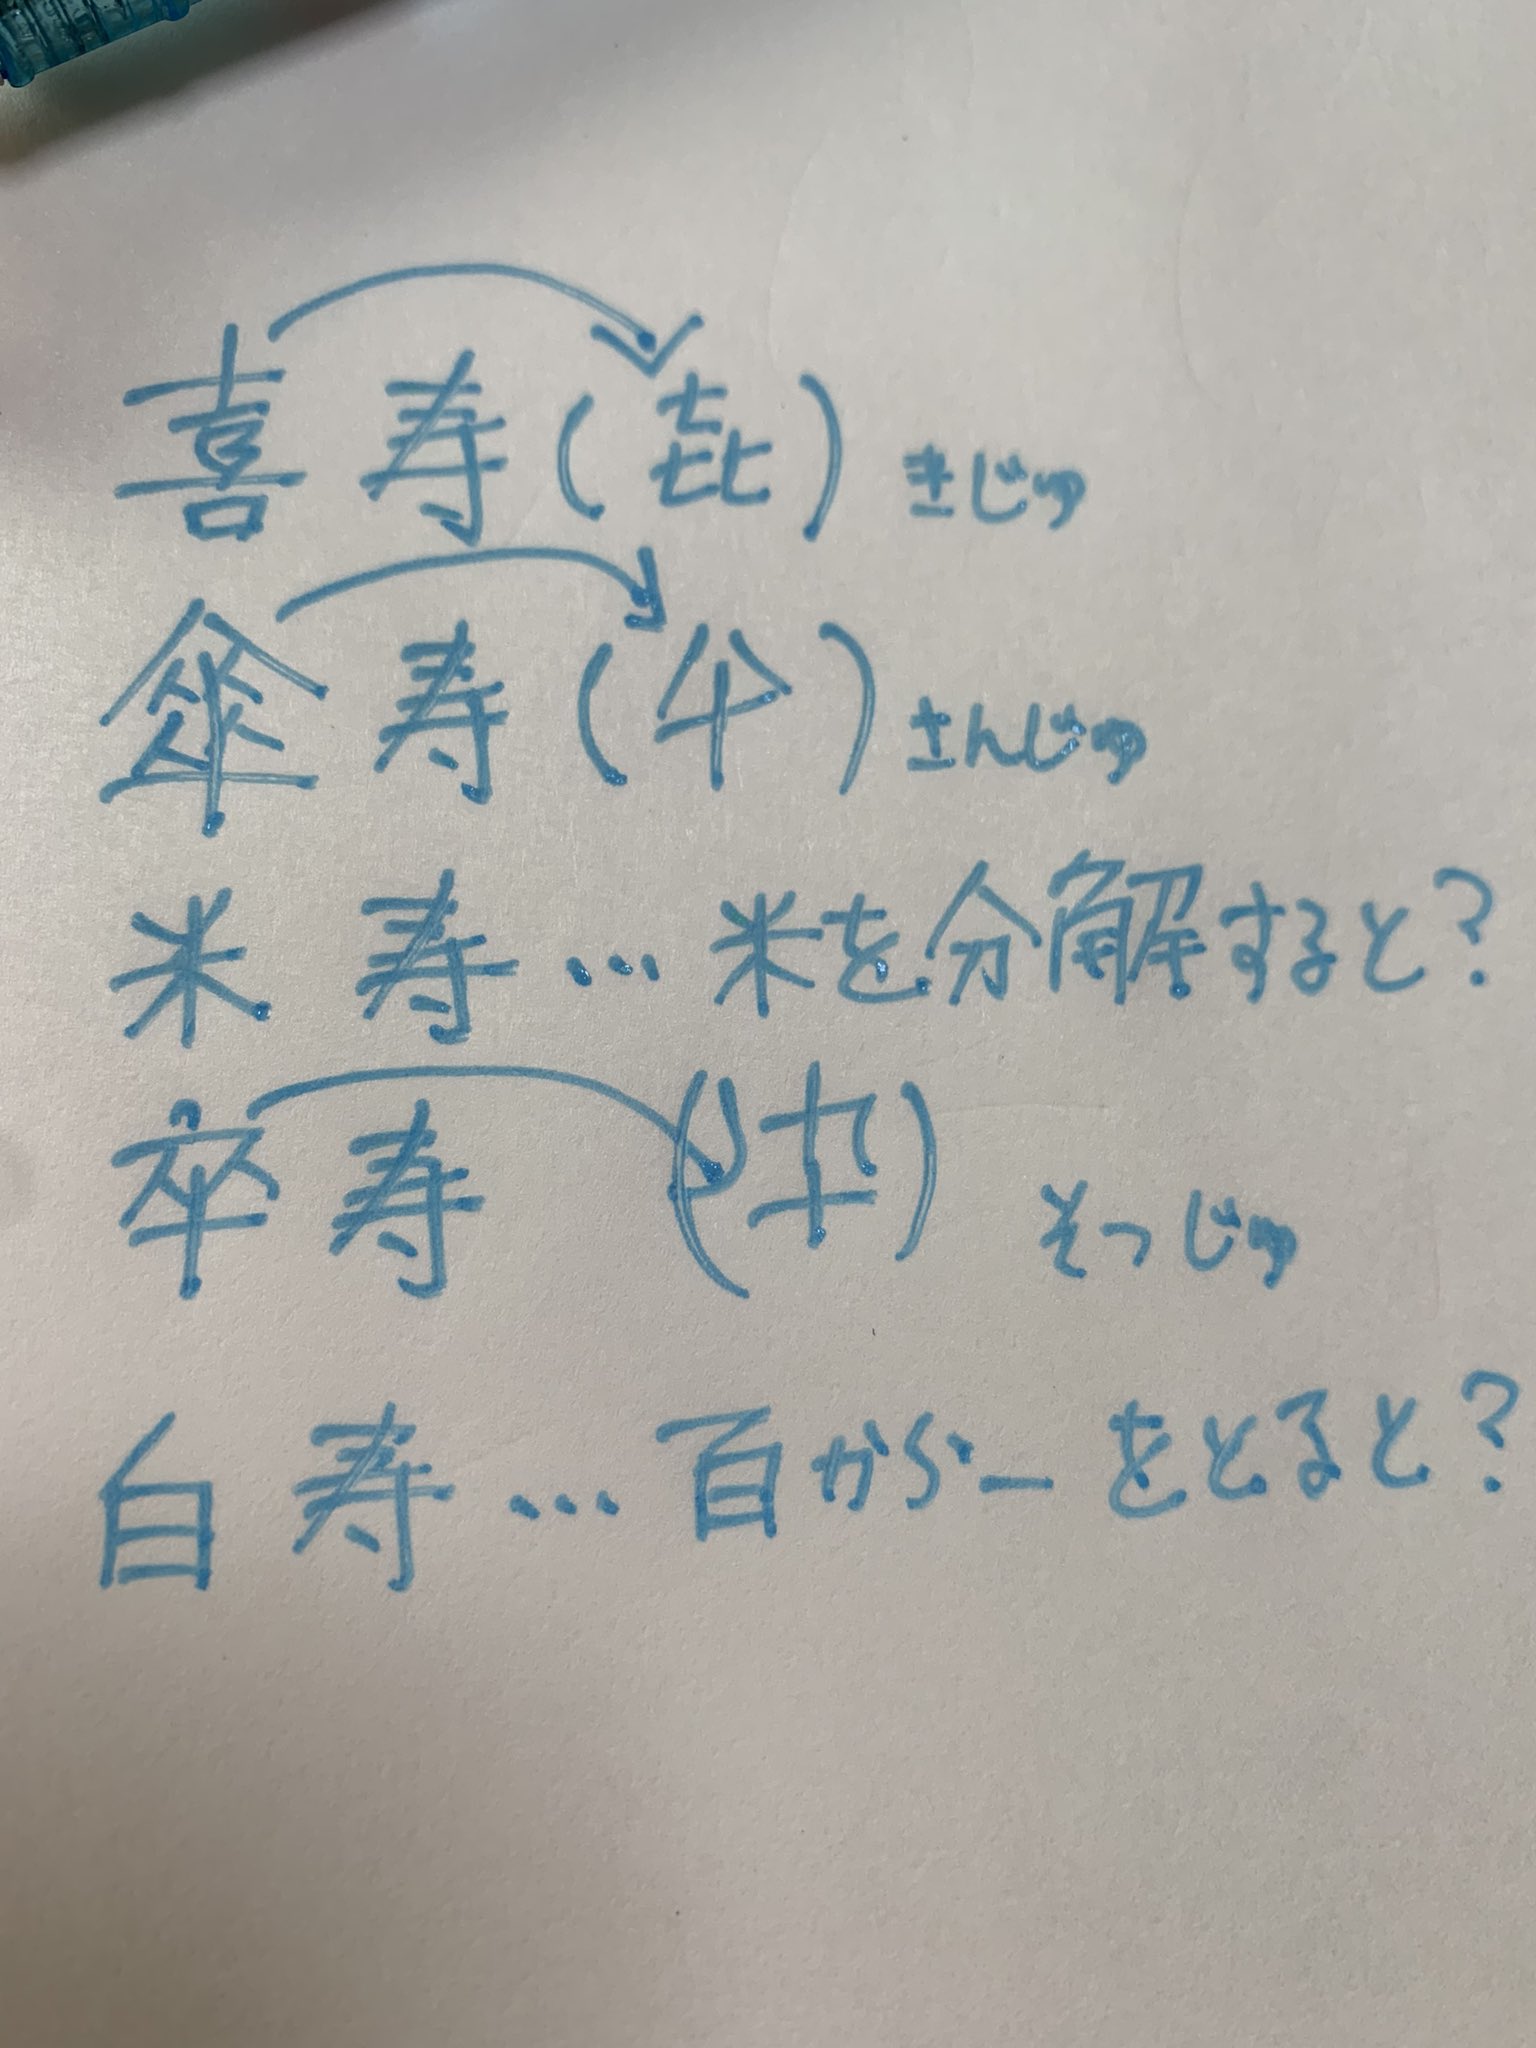 喜寿(㐂)きじゅ
傘寿(仐)さんじゅ
米寿…米を分解すると?
卒寿(卆)そつじゅ
白寿…百から一をとると?